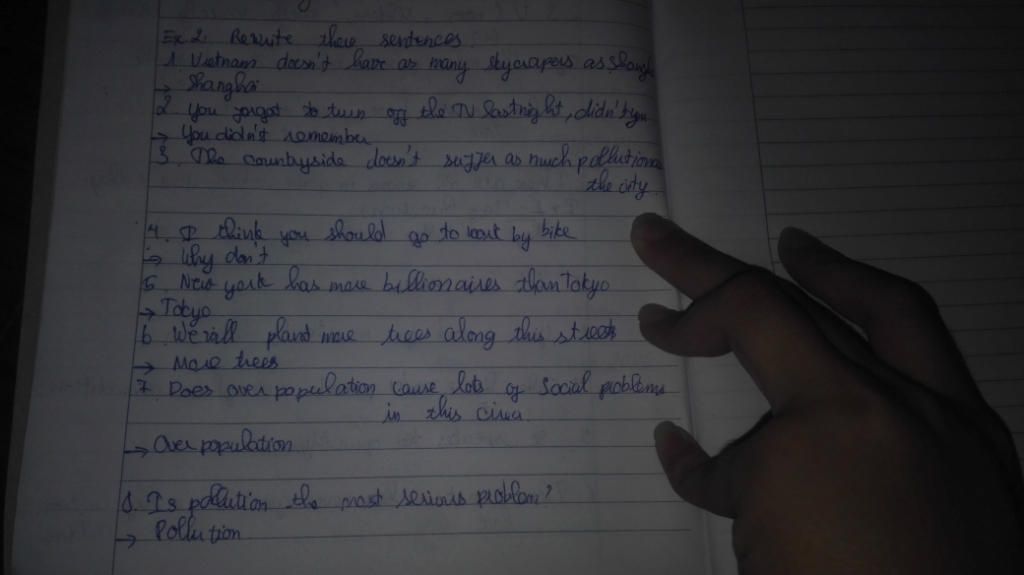 Ex 2. Rewrite these sentences
1 Vietnam doesn't have as many skycrapers as
→ Shanghai
2. You forgot to turn off the TV lastnight, didn't you
→ You didn't remember
3. The countryside doesn't suffer as much pollution
the city.
4. I think you should go to work by bike
→ Why don't
5. New york has more billionaires than Tokyo
→ Tokyo
6. We'll plant more trees along this street
→ More trees
7. Does over population cause lots of Social problems
in this
→ Over population
8. Is pollution the most serious problem?
→ Pollution